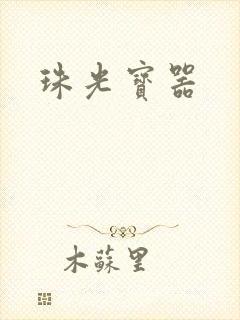 珠光寶器
木蘇里